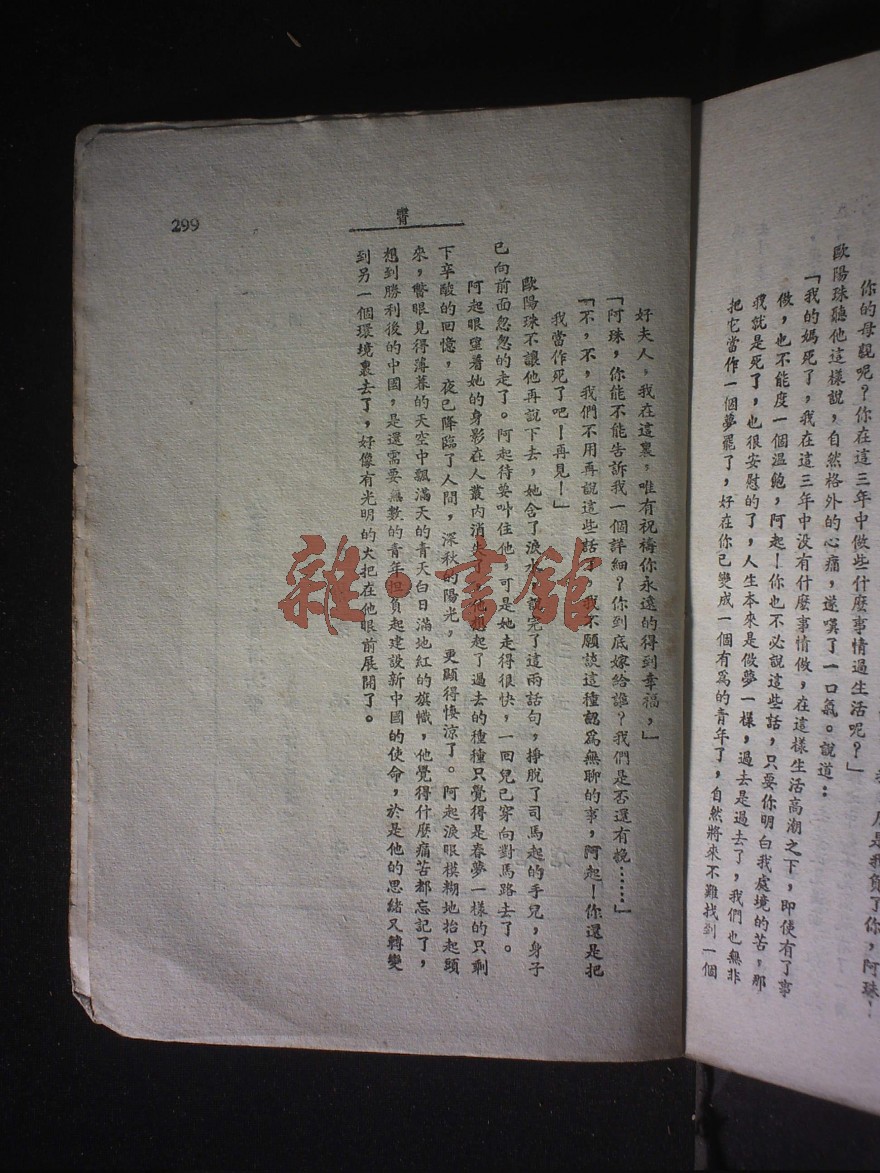 你的母親呢？你在這三年中做些什麼事情過生活呢？」
歐陽珠聽他這樣說，自然格外的心痛，遂嘆了一口氣。說道：
「我的媽死了，我在這三年中没有什麼事情做，在這樣生活高潮之下，即使有了事
做，也不能度一個溫飽，阿起！你也不必說這些話，只要你明白我處境的苦，那
我就是死了，也很安慰的了，人生本來是做夢一樣，過去是過去了，我們也無非
把它當作一個夢罷了，好在你已變成一個有爲的青年了，自然將來不難找到一個
299
好夫人，我在這裏，唯有祝禱你永遠的得到幸福，」
「阿珠，你能不能告訴我一個詳細？你到底嫁給誰？我們是否還有挽……」
「不，不，我們不用再說這些話了，我不願談這種認爲無聊的事，阿起！你還是把
我當作死了吧！再見！」
歐陽珠不讓他再說下去，她含了淚水，說完了這兩話句，掙脫了司馬起的手兒，身子
已向前面忽忽的走了。阿起待要叫住他，可是她走得很快，一回兒已穿向對馬路去了。
阿起眼望着她的身影在人叢內消失了，他想起了過去的種種只覺得是春夢一樣的只剩
下辛酸的回憶，夜已降臨了人間，深秋的陽光，更顯得悽涼了。阿起淚眼模糊地抬起頭
來，瞥眼見得薄暮的天空中飄滿天的青天白日滿地紅的旗幟，他覺得什麼痛苦都忘記了，
想到勝利後的中國，是還需要無數的青年担負起建設新中國的使命，於是他的思緒又轉變
到另一個環境裏去了，好像有光明的火把在他眼前展開了。
雜·書館